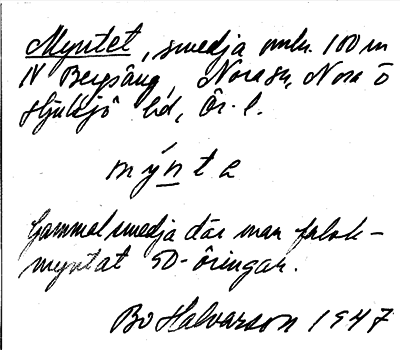 Myntet, smedja omkr. 100 m
N Bergsäng, Norasn, Nora ö
Hjulsjö bd, Ör. l.
mýnte
Gammal smedja där man falsk-
myntat 50-öringar.
Bo Halvarson 1947